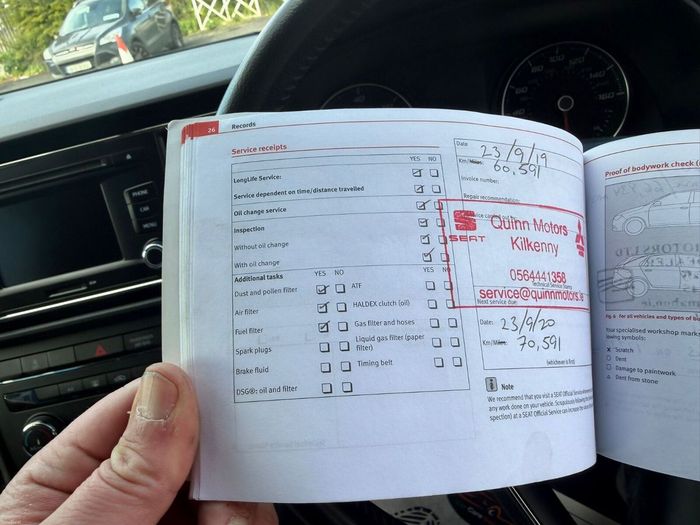 26 Records
Service receipts
YES NO
LongLife Service:
Service dependent on time/distance travelled
Oil change service
Inspection
Without oil change
With oil change
Additional tasks YES NO YES NO
Dust and pollen filter ATF
Air filter HALDEX clutch (oil)
Fuel filter Gas filter and hoses
Spark plugs Liquid gas filter (paper filter)
Brake fluid Timing belt
DSG®: oil and filter
Date 23/9/19
Km/Miles: 60,591
Invoice number:
Repair recommendation:
SEAT
Quinn Motors
Kilkenny
0564441358
Technical Service Stamp
service@quinnmotors.ie
Next service due:
Date: 23/9/20
Km/Miles: 70,591
(whichever is first)
Note
We recommend that you visit a SEAT Official Service
any work done on your vehicle. Scrupulously following the
spection) at a SEAT Official Service can increase the
Proof of bodywork check
Fig. 6 For all vehicles and types of
Your specialised workshop marks
lowing symbols:
x Scratch
o Dent
□ Damage to paintwork
△ Dent from stone
PHONE
CAR
MENU
60
80
120
140
160